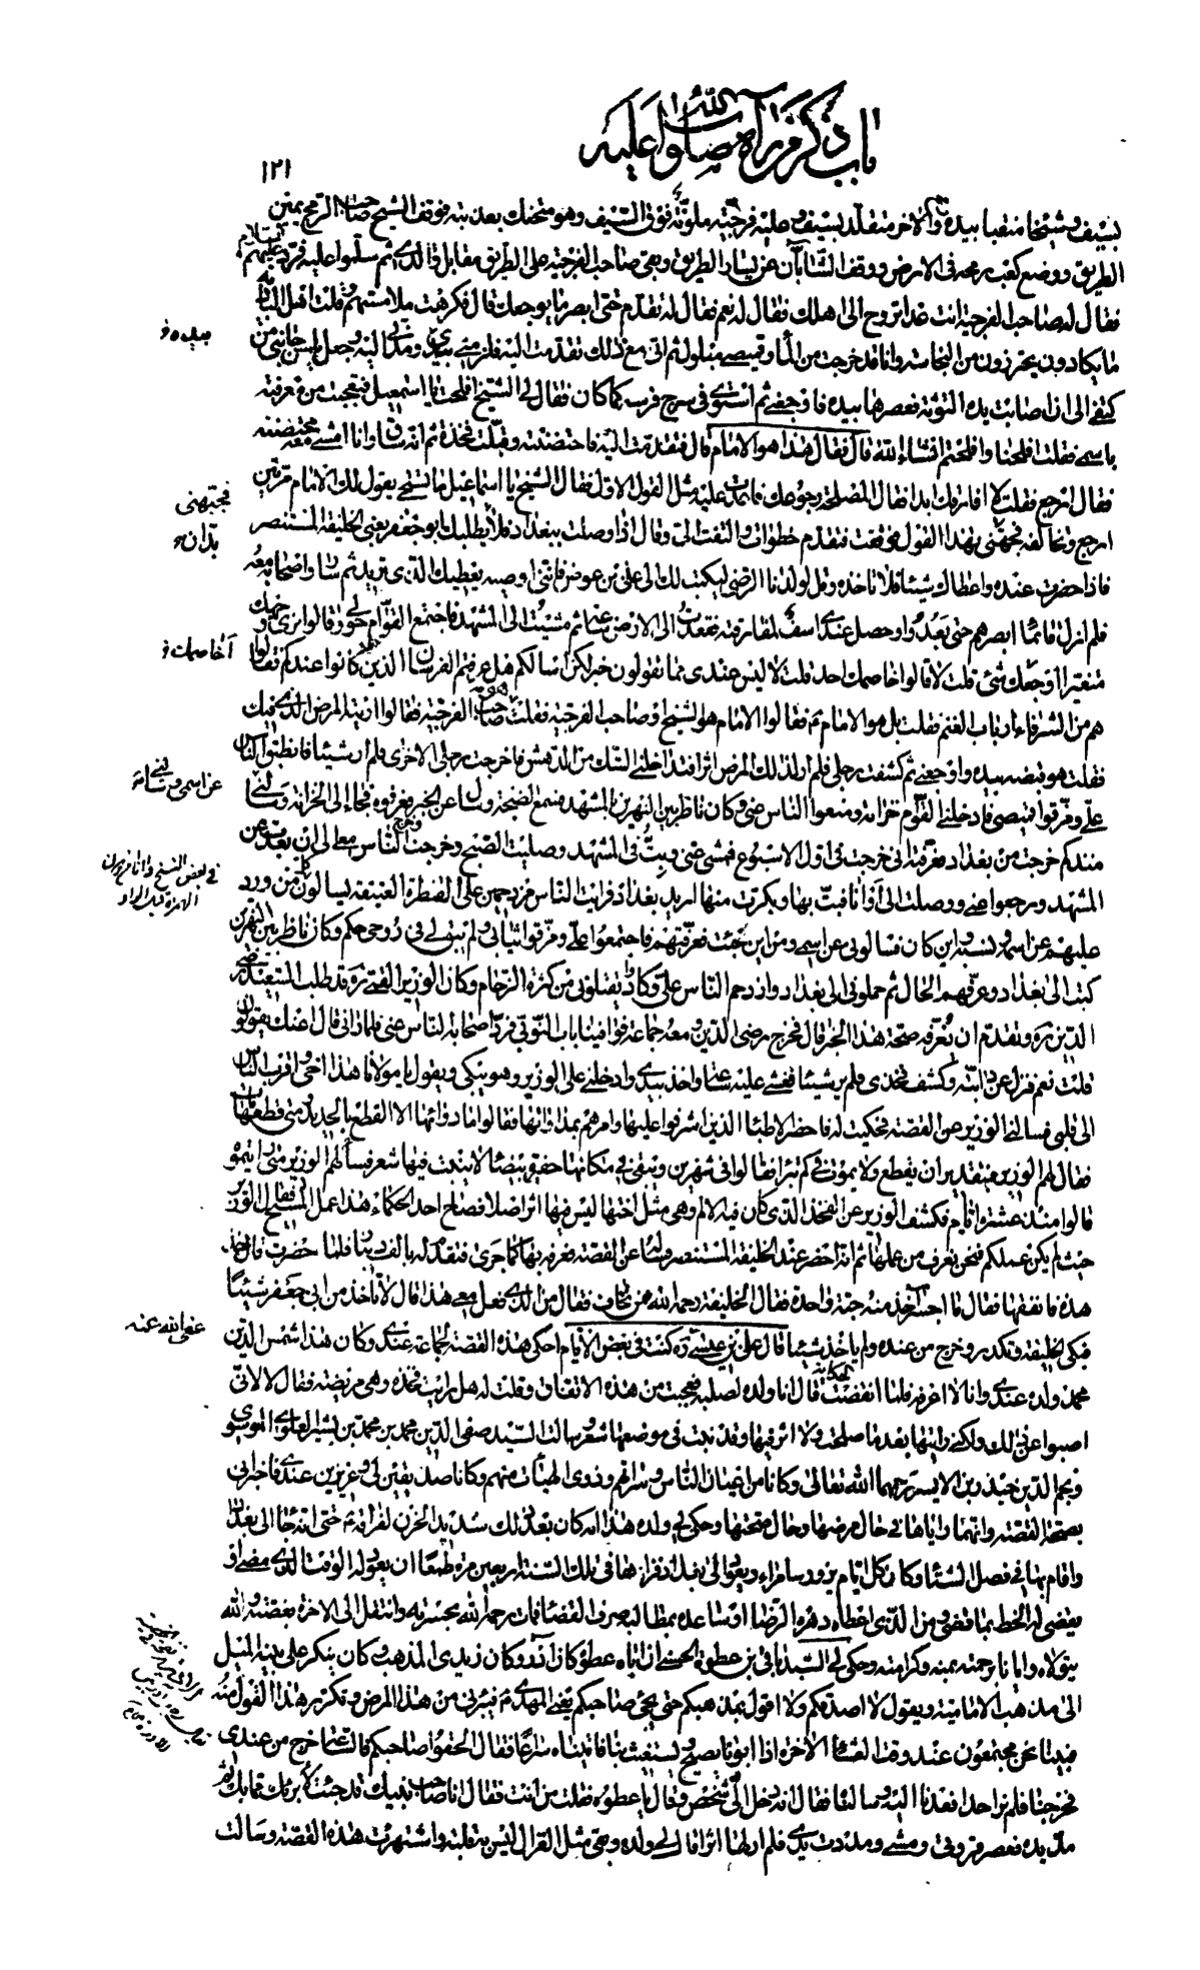 باب ذكر من رآه صلوات الله عليه
١٢١
بسيف وشيخا منقبا بيده رمح والاخر متقلد بسيف وعليه فرجية ملونة فوق السيف وهو متحنك بعذبته فوقف الشيخ صاحب الرمح يمين
الطريق ووضع كعب رمحه في الارض ووقف الشابان عن يسار الطريق وبقي صاحب الفرجية على الطريق مقابل والدي ثم سلموا عليه فرد عليهم السلام
فقال له صاحب الفرجية انت غدا تروح الى اهلك فقال له نعم فقال له تقدم حتى ابصر ما يوجعك قال فكرهت ملامستهم وقلت اهل البادية
ما يكادون يحترزون من النجاسة وانا قد خرجت من الماء وقميصي مبلول ثم اني مع ذلك تقدمت اليه فلزمني بيدي ومدني اليه وجعل يلمس جانبي من
كتفي الى ان اصابت يده التوثة فعصرها بيده فاوجعني ثم استوى في سرج فرسه كما كان فقال لي الشيخ افلحت يا اسمعيل فتعجبت من معرفته
باسمي فقلت افلحنا وافلحتم انشاء الله قال فقال هذا هو الامام قال فتقدمت اليه فاحتضنته وقبلت فخذه ثم انه ساق وانا امشي معه محتضنه
فقال ارجع فقلت لا افارقك ابدا فقال المصلحة رجوعك فاعدت عليه مثل القول الاول فقال الشيخ يا اسماعيل ما تستحي يقول لك الامام مرتين
ارجع وتخالفه فجبهني بهذا القول فوقفت فتقدم خطوات والتفت الي وقال اذا وصلت ببغداد فلابد ان يطلبك ابو جعفر يعني الخليفة المستنصر
فاذا حضرت عنده واعطاك شيئا فلا تاخذه وقل لولدنا الرضي ليكتب لك الى علي بن عوض فانني اوصيه يعطيك الذي تريد ثم سار واصحابه معه
فلم ازل قائما ابصرهم حتى بعدوا وحصل عندي اسف لمفارقته فقعدت الى الارض ساعة ثم مشيت الى المشهد فاجتمع القوام حولي وقالوا نرى وجهك
متغيرا اوجعك شئ قلت لا قالوا خاصمك احد قلت لا ليس عندي مما تقولون خبر لكن اسالكم هل عرفتم الفرسان الذين كانوا عندكم فقالوا
هم من الشرفاء ارباب الغنم فقلت بل هو الامام ع فقالوا الامام هو الشيخ او صاحب الفرجية فقلت هو صاحب الفرجية فقالوا اريته المرض الذي فيك
فقلت هو قبضه بيده واوجعني ثم كشفت رجلي فلم ار لذلك المرض اثرا فتداخلني الشك من الدهش فاخرجت رجلي الاخرى فلم ار شيئا فانطبق الناس
علي ومزقوا قميصي فادخلني القوام خزانة ومنعوا الناس عني وكان ناظر بين النهرين بالمشهد فسمع الضجة وسال عن الخبر فعرفوه فجاء الى الخزانة وسالني
منذكم خرجت من بغداد فعرفته اني خرجت في اول الاسبوع فمشى عني وبت في المشهد وصليت الصبح وخرجت وخرج الناس معي الى ان بعدت عن
المشهد ورجعوا عني ووصلت الى اوانا فبت بها وبكرت منها اريد بغداد فرايت الناس مزدحمين على القنطرة العتيقة يسالون كل من ورد
عليهم عن اسمه ونسبه واين كان فسالوني عن اسمي ومن اين جئت فعرفتهم فاجتمعوا علي ومزقوا ثيابي ولم يبق لي في روحي حكم وكان ناظر بين النهرين
كتب الى بغداد وعرفهم الحال ثم حملوني الى بغداد وازدحم الناس علي وكادوا يقتلونني من كثرة الزحام وكان الوزير القمي ره قد طلب السعيد رضي
الدين ره وتقدم ان يعرفه صحة هذا الخبر قال فخرج رضي الدين ومعه جماعة فوافينا باب النوبي فرد اصحابه الناس عني فلما راني قال اعنك يقولون
قلت نعم فنزل عن دابته وكشف فخذي فلم ير شيئا فغشي عليه ساعة واخذ بيدي وادخلني على الوزير وهو يبكي ويقول يا مولانا هذا اخي واقرب الناس
الى قلبي فسالني الوزير عن القصة فحكيت له فاحضر الاطباء الذين اشرفوا عليها وامرهم بمداواتها فقالوا ما دوائها الا القطع بالحديد ومتى قطعها مات
فقال لهم الوزير فبتقدير ان يقطع ولا يموت في كم تبرا فقالوا في شهرين ويبقى في مكانها حفيرة بيضا لا ينبت فيها شعر فسالهم الوزير متى رايتموه
قالوا منذ عشرة ايام فكشف الوزير عن الفخذ الذي كان فيه الالم وهي مثل اختها ليس فيها اثر اصلا فصاح احد الحكماء هذا عمل المسيح فقال الوزير
حيث لم يكن عملكم فنحن نعرف من عملها ثم انه احضر عند الخليفة المستنصر فساله عن القصة فعرفه بها كما جرى فتقدم له بالف دينار فلما حضرت قال خذ
هذه فانفقها فقال ما اجسر اخذ منه حبة واحدة فقال الخليفة رحمه الله ممن تخاف فقال من الذي فعل معي هذا قال لا تاخذ من ابي جعفر شيئا
فبكى الخليفة وتكدر وخرج من عنده ولم ياخذ شيئا قال علي بن عيسى ره كنت في بعض الايام احكي هذه القصة لجماعة عندي وكان هذا شمس الدين
محمد ولده عندي وانا لا اعرفه فلما انقضت الحكاية قال انا ولده لصلبه فعجبت من هذه الاتفاق وقلت له هل رايت فخذه وهي مريضة فقال لا لاني
اصبوا عن ذلك ولكني رايتها بعد ما صلحت ولا اثر فيها وقد نبت في موضعها شعر وسالت السيد صفي الدين محمد بن محمد بن بشير العلوي الموسوي
ونجم الدين حيدر بن الايسر رحمهما الله تعالى وكانا من اعيان الناس وسراتهم وذوي الهيئات منهم وكانا صديقين لي وعزيزين عندي فاخبراني
بصحة القصة وانهما راياها في حال مرضها وحال صحتها وحكى لي ولده هذا انه كان بعد ذلك شديد الحزن لفراقه ع حتى انه جاء الى بغداد
واقام بها في فصل الشتا وكان كل ايام يزور سامراء ويعود الى بغداد فزارها في تلك السنة اربعين مرة طمعا ان يعود له الوقت الذي مضى او
يقضى له الحظ بما قضى ومن الذي اعطاه دهره الرضا او ساعده بمطالبه صرف القضا فمات رحمه الله بحسرته وانتقل الى الاخرة بغصته والله
يتولاه وايانا برحمته بمنه وكرامته وحكى لي السيد باقي بن عطوة الحسني ان اباه عطوة كان ادر وكان زيدي المذهب وكان ينكر على بنيه الميل
الى مذهب الامامية ويقول لا اصدقكم ولا اقول بمذهبكم حتى يجئ صاحبكم يعني المهدي ع فيبرئني من هذا المرض وتكرر هذا القول منه
فبينا نحن مجتمعون عند وقت العشاء الاخرة اذا ابونا يصيح ويستغيث بنا فاتيناه سراعا فقال الحقوا صاحبكم فالساعة خرج من عندي
فخرجنا فلم نر احدا فعدنا اليه وسالناه فقال انه دخل الي شخص وقال يا عطوه فقلت من انت فقال انا صاحب بنيك قد جئت لابرئك مما بك ثم
مد يده فعصر قروتي ومشى ومددت يدي فلم ار لها اثرا قال لي ولده وبقي مثل الغزال ليس به قلبة واشتهرت هذه القصة وسالت
بيده خ
فجبهني
بدان خ
آخاصمك خ
عن اسمي وسالني
في بعض النسخ وانا
عفى الله عنه